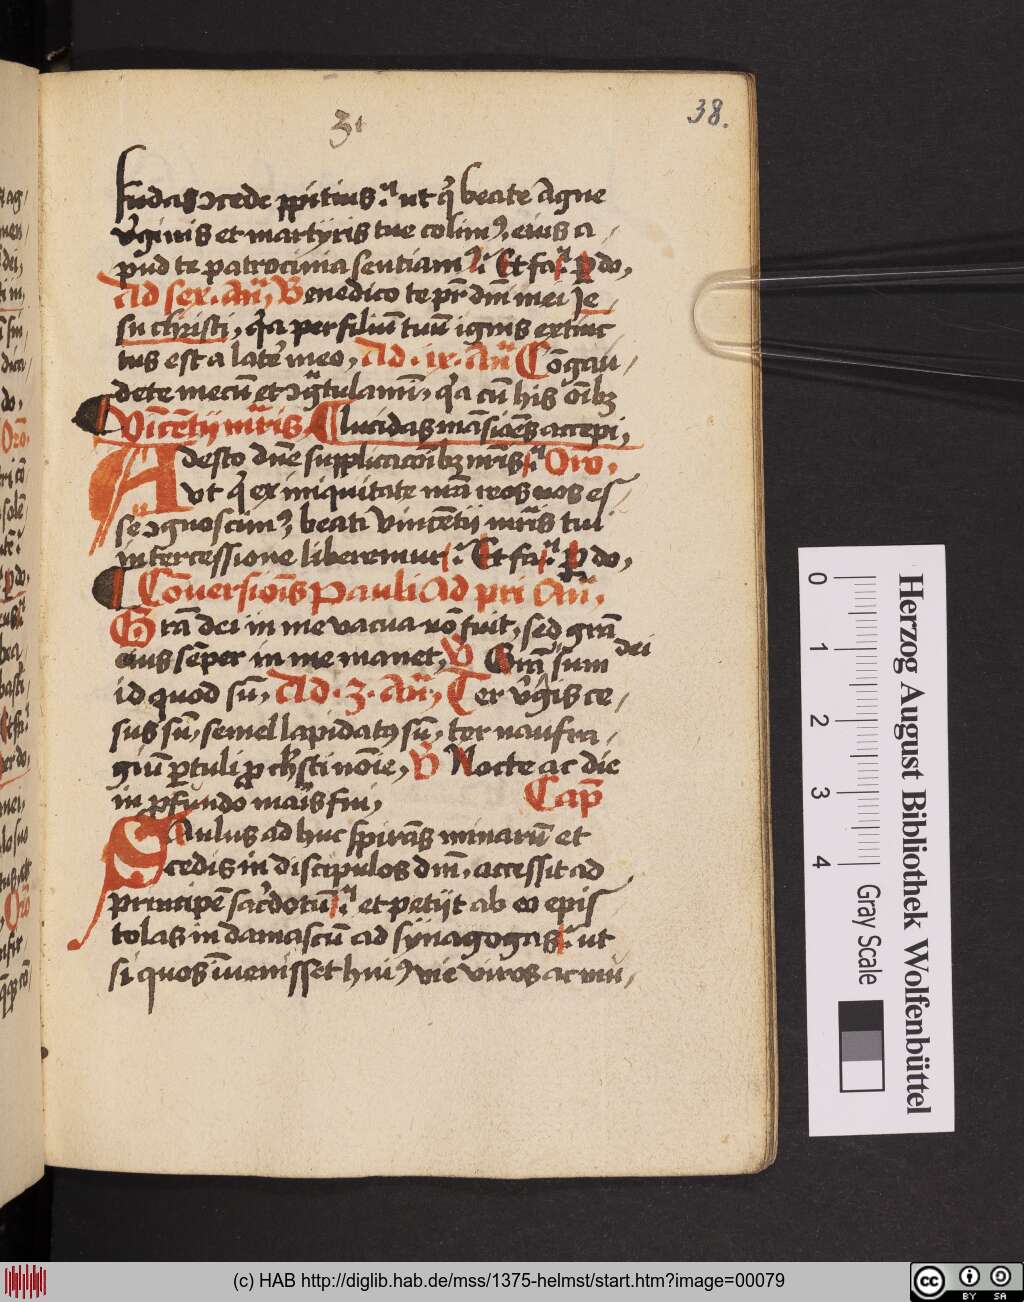 31
38.
fundas ꝯcede ꝓpitius ut qͥ beate Agne
v̓ginis et martyris tue colimꝰ, eius a-
pud te patrocinia sentiamꝰ. Et fa. ꝑ do,
Ad sex. an̄, Benedico te pr̄ dn̄i mei Je-
su christi, qͥa per filiū tuū ignis extinc
tus est a late̓ meo, Ad .ix. an̄ Cōgau-
dete mecū et ꝯgͣtulamī, qͥa cū his om̄ibꝫ
Vīcētij mr̄is, lucidas māsiōēs accepi,
Adesto dn̄e supplicacōibꝫ nr̄is Oro,
ut qͥ ex iniquitate nr̄a reos nos es-
se ꝯgnoscimꝰ, beati Vincētij mr̄is tui
intercessione liberemur. Et fa. ꝑ do,
Cōuersiōis Pauli Ad pri an̄,
Gr̄a dei in me vacua nō fuit, sed gr̄a
eius sēper in me manet, V Gr̄a dei sum
id quod sū, Ad .3. an̄, Ter v̓gis ce-
sus sū, semel lapidatꝰ sū, ter naufra-
giū ꝑtuli ꝓ chr̄sti nōīe, V Nocte ac die
in ꝓfundo maris fui, Cap̄
Saulus ad huc spirās minarū et
cedis in discipulos dn̄i, accessit ad
principē sac̓dotū et petijt ab eo epis
tolas in damascū ad synagogas. ut
si quos īuenisset huiꝰ vie viros ac mu-
0 1 2 3 4
Gray Scale
Herzog August Bibliothek Wolfenbüttel
(c) HAB http://diglib.hab.de/mss/1375-helmst/start.htm?image=00079
cc BY SA